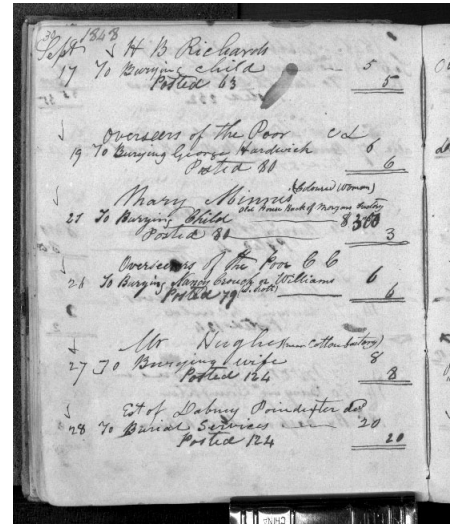 30
Sept 1848 H B Richards
17 To Burying Child 5
Posted 63 5
Overseers of the Poor
19 To Burying George Hardwick 6
Posted 80 6
Mary Minnis (Colored Woman)
21 To Burying Child Old House Back of Morgans Factory 3
Posted 80 3
Overseers of the Poor C C
26 To Burying Nancy or Williams 6
Posted 79 6
Mr Hughes (near Cotton Factory)
27 To Burying wife 8
Posted 124 8
Est of Dabney Poindexter
28 To Burial Services 20
Posted 124 20